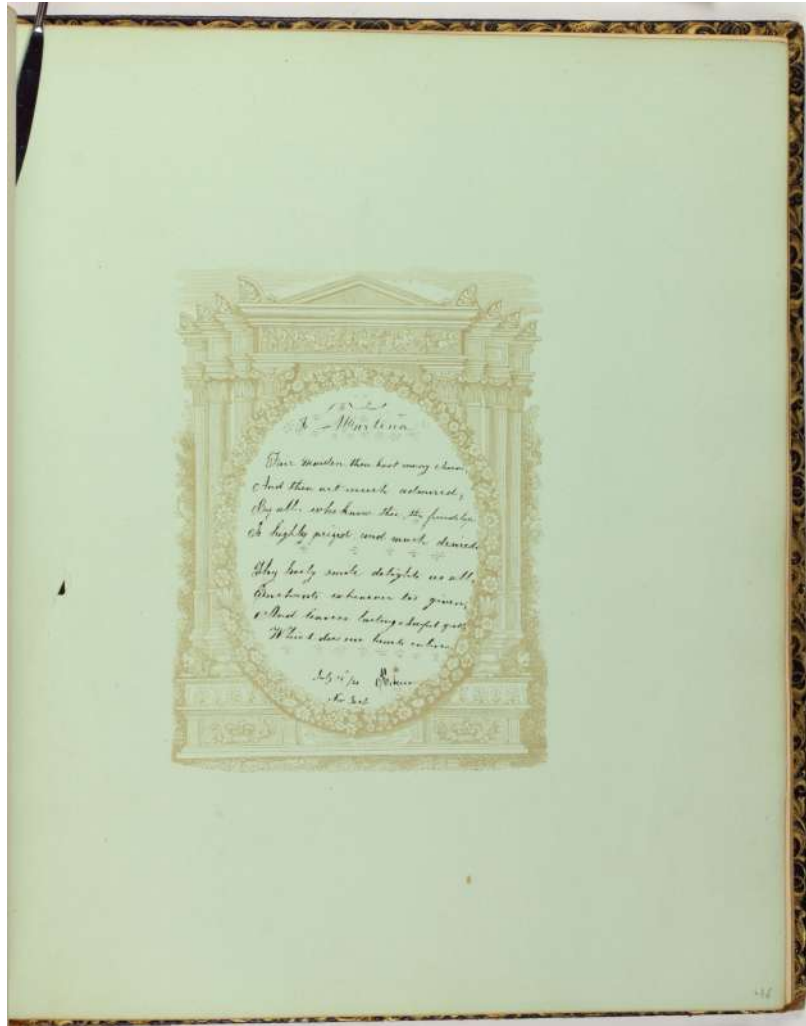 To Martina
Fair maiden thou hast many charms,
And thou art much admired,
By all who know thee, thy friendship
Is highly prized and much desired.
Thy lovely smile delights us all,
Enchants whenever tis given,
And leaves
Whilst does our hearts
July
New York
46